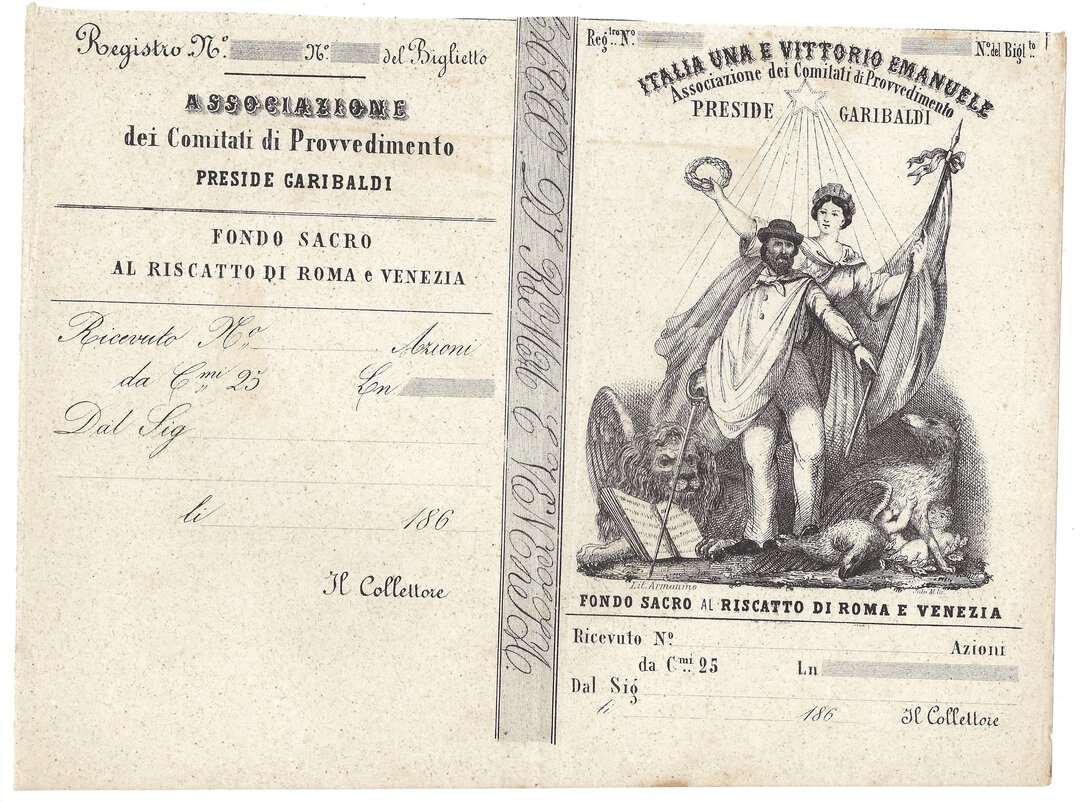 Registro N.º N.º del Biglietto
ASSOCIAZIONE
dei Comitati di Provvedimento
PRESIDE GARIBALDI
FONDO SACRO
AL RISCATTO DI ROMA e VENEZIA
Ricevuto N.º Azioni
da C.mi 25 Ln
Dal Sig
li 186
Il Collettore
DI ROMA E VENEZIA
Reg.tro N.º N.º del Bigl.tto
ITALIA UNA E VITTORIO EMANUELE
Associazione dei Comitati di Provvedimento
PRESIDE GARIBALDI
Lit. Armanino
FONDO SACRO AL RISCATTO DI ROMA E VENEZIA
Ricevuto N.º Azioni
da C.mi 25 Ln
Dal Sig
li 186 Il Collettore